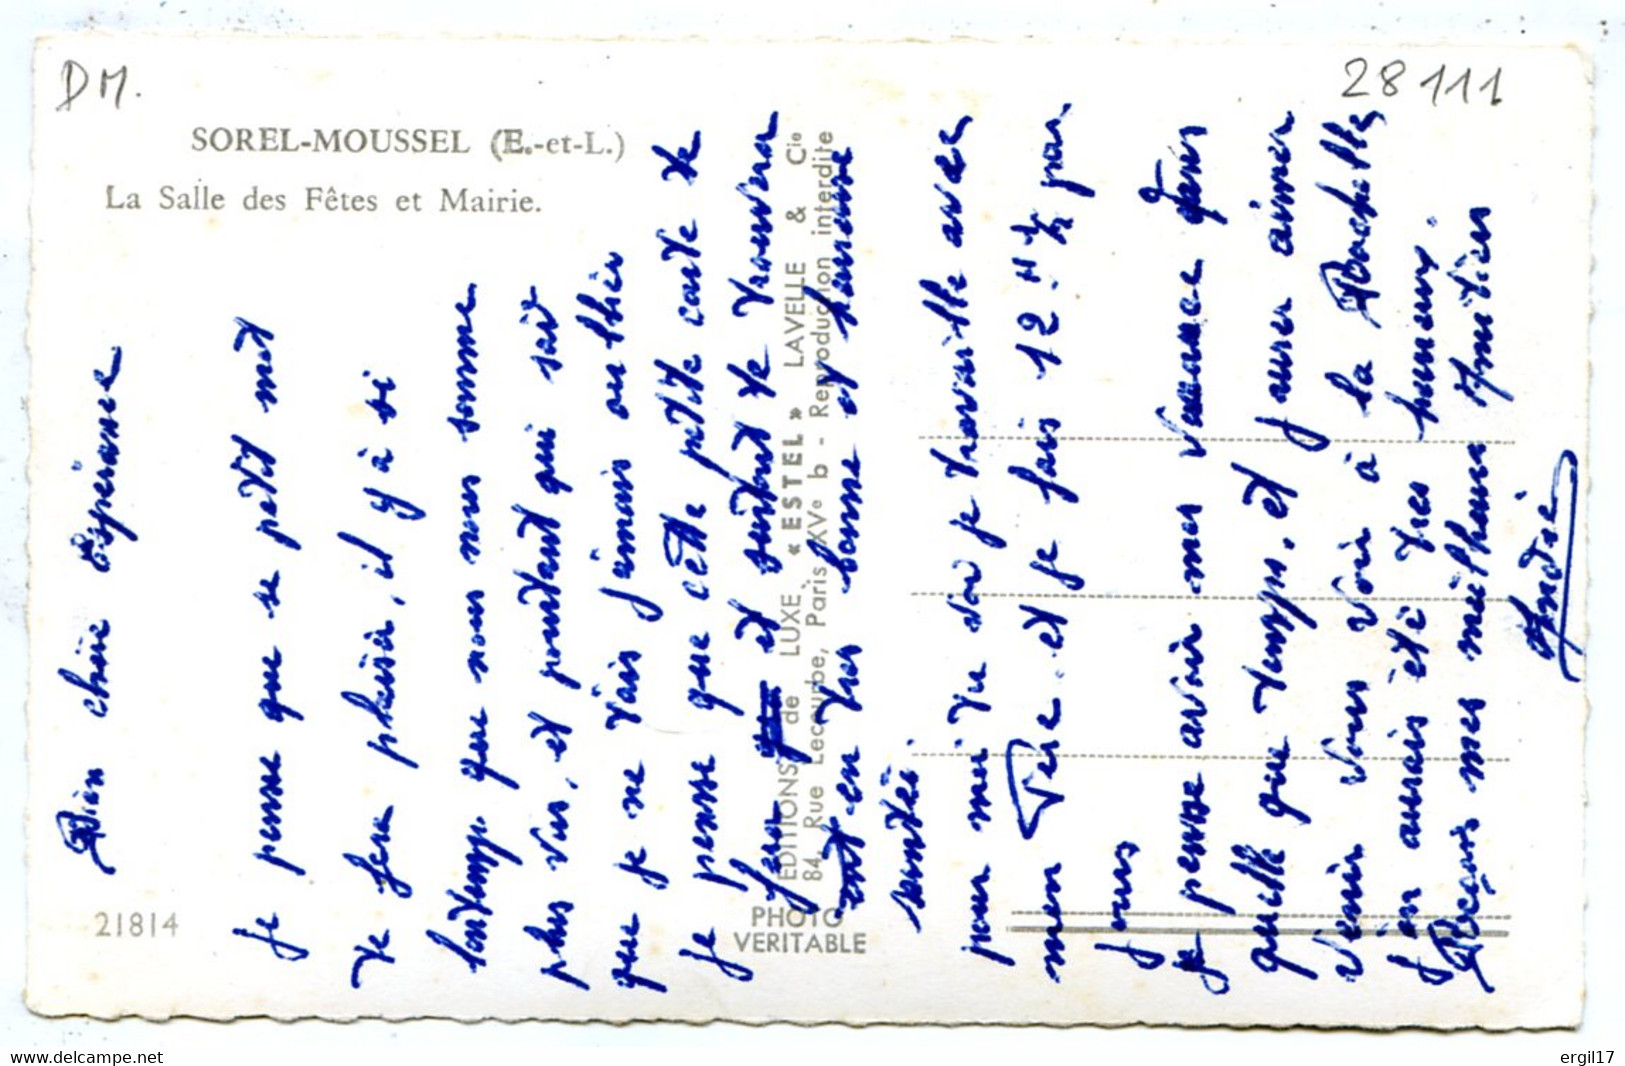 DM.
28111
SOREL-MOUSSEL (E.-et-L.)
La Salle des Fêtes et Mairie.
21814
EDITIONS de LUXE « ESTEL » LAVELLE & Cie
84, Rue Lecourbe, Paris XVe b - Reproduction interdite
PHOTO
VERITABLE
Bien chère Espérance
Je pense que se petit mot
te fera plaisir, il y à si
lontemp que nous nous somme
plus vus, et pourtant qui sait
que je ne t'ais jamais oublier
Je pense que cette petite carte te
fera et surtout te trouvera
en tres bonne et heureuse
santée
pour moi tu voi je travaille avec
mon Père. et je fais 12 H ½ par
jour
je pense avoir mes vacance dans
quelle que temps, et j'aurer aimer
venir vous voir à la Rochelle,
j'en aurais été tres heureux.
Reçois mes meilleurs Amitiés
André
delcampe.net
ergil17